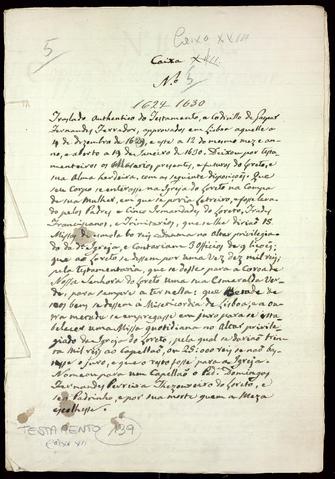 5
Caixa XXIII
Caixa
N.º 5
1624 1630
Traslado Authentico do Testamento, e Codicillo de Gaspar
Fernandes Ferrador, approvados em Lisboa aquelle a
4 de Dezembro de 1624, e este a 12 do mesmo mez e an-
no, e aberto a 19 de Janeiro de 1630. Deixou por Testa-
menteiros os Mesarios presentes, e futuros do Loreto, e
sua Alma herdeira, com as seguinte disposiçoẽs: Que
seu Corpo se enterasse na Igreja do Loreto na Campa
de sua Mulher, em que se poria Letreiro, e fosse leva-
do pelos Padres e Cinco Irmandades do Loreto, Frades
Franciscanos, e Trinitarios, que se lhe dirião 15.
Missas de esmola 60 reis cada uma no altar privilegia-
do da dª Igreja, e Cantarião 3 Officios de 9 liçoẽs;
que ao Loreto se dessem por uma vez dez mil reis
pela Testamentaria, que se desse para a Coroa de
Nossa Senhora do Loreto uma sua Esmeralda Ver-
de, para sempre a ter nella; que metade de
seus bens se desse à Misericordia de Lisboa, e a ou-
tra metade se empregasse em juro para se esta-
belecer uma Missa quotidiana no Altar privile-
giado da Igreja do Loreto, pela qual se darião trin-
ta mil reis ao Capellão, ou 25:000 reis se não bas-
tasse o juro, e que o resto fosse para a Igreja.
Nomeou para um Capellão o Pdᵉ Domingos
Fernandes Pereira Thezoureiro do Loreto, e
seu Padrinho, e por sua morte quem a Meza
escolhesse.
TESTAMENTO
Caixa VII
139